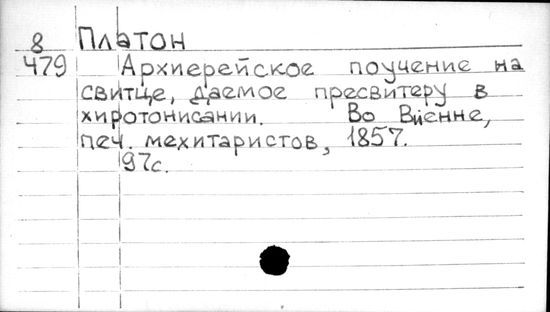 8 Платон
479 Архиерейское поучение на
свитце, даемое пресвитеру в
хиротонисании. Во Виенне,
печ. мехитаристов, 1857.
97с.